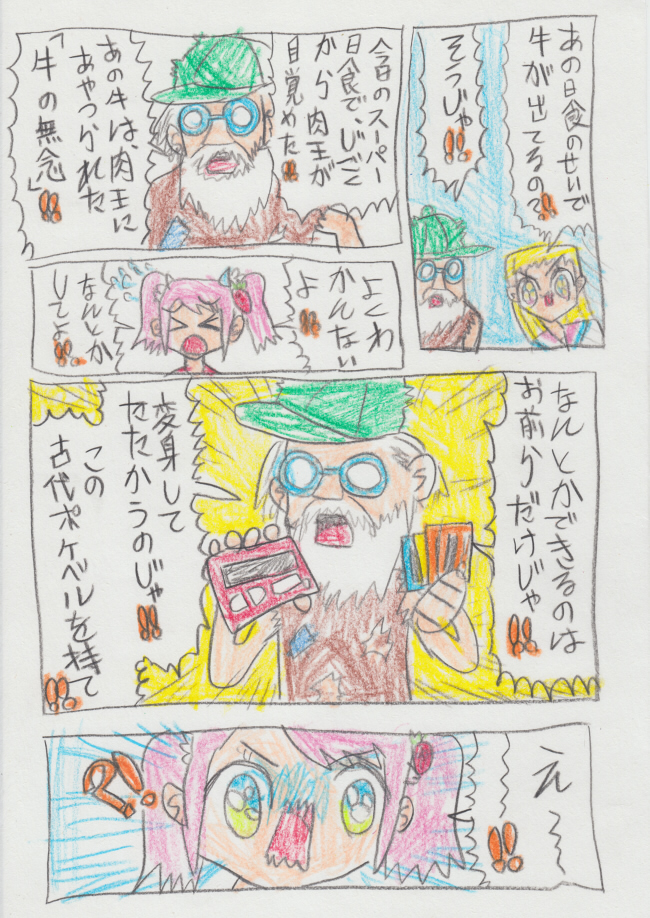 あの日食のせいで
牛が出てるの?!!
そうじゃ!!
今日のスーパー
日食で、じごく
から肉王が
目覚めた!!
あの牛は、肉王に
あやつられた
「牛の無念」!!
よくわ
かんない
よ!!
なんとか
してよ!!
なんとかできるのは
お前らだけじゃ!!
変身して
たたかうのじゃ!!
この
古代ポケベルを持て!!
え~~!!
?!